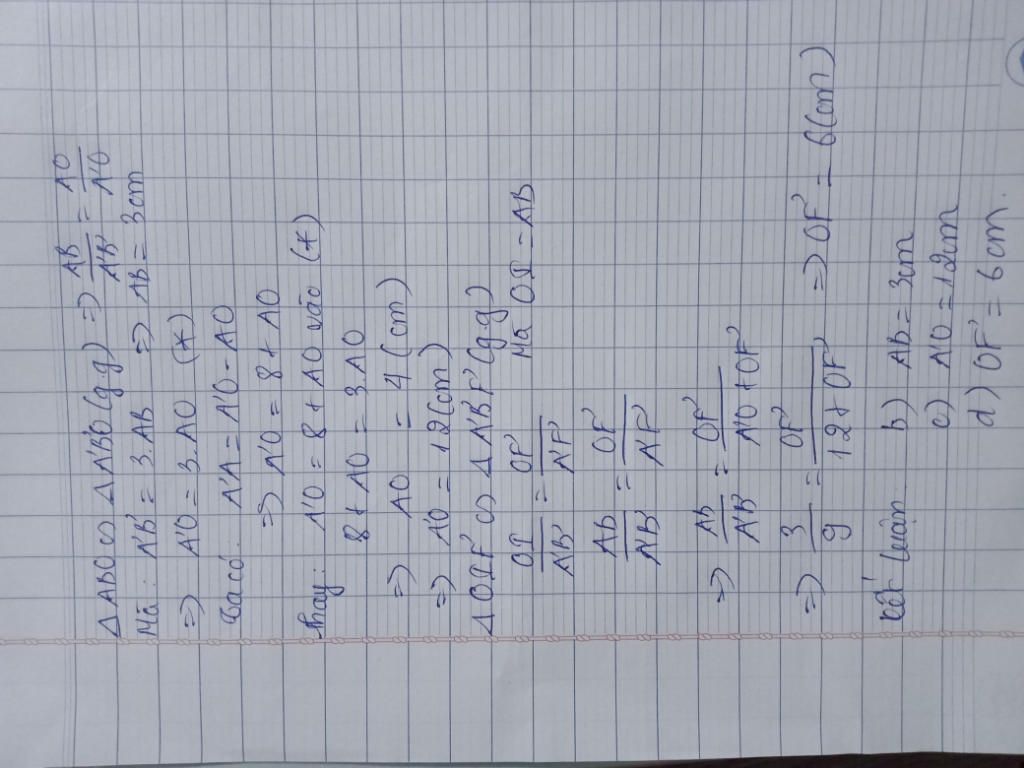 ΔABO ∽ ΔA'B'O (g.g) => AB/A'B' = AO/A'O
Mà: A'B' = 3.AB => AB = 3cm
=> A'O = 3.AO (*)
Ta có: A'A = A'O - AO
=> A'O = 8 + AO
Thay: A'O = 8 + AO vào (*)
8 + AO = 3AO
=> AO = 4 (cm)
=> A'O = 12 (cm)
ΔOIF' ∽ ΔA'B'F' (g.g)
OI/A'B' = OF'/A'F' Mà OI = AB
AB/A'B' = OF'/A'F'
=> AB/A'B' = OF'/A'O + OF'
=> 3/9 = OF'/12 + OF' => OF' = 6 (cm)
kết luận: b) AB = 3cm
c) A'O = 12cm
d) OF' = 6cm.